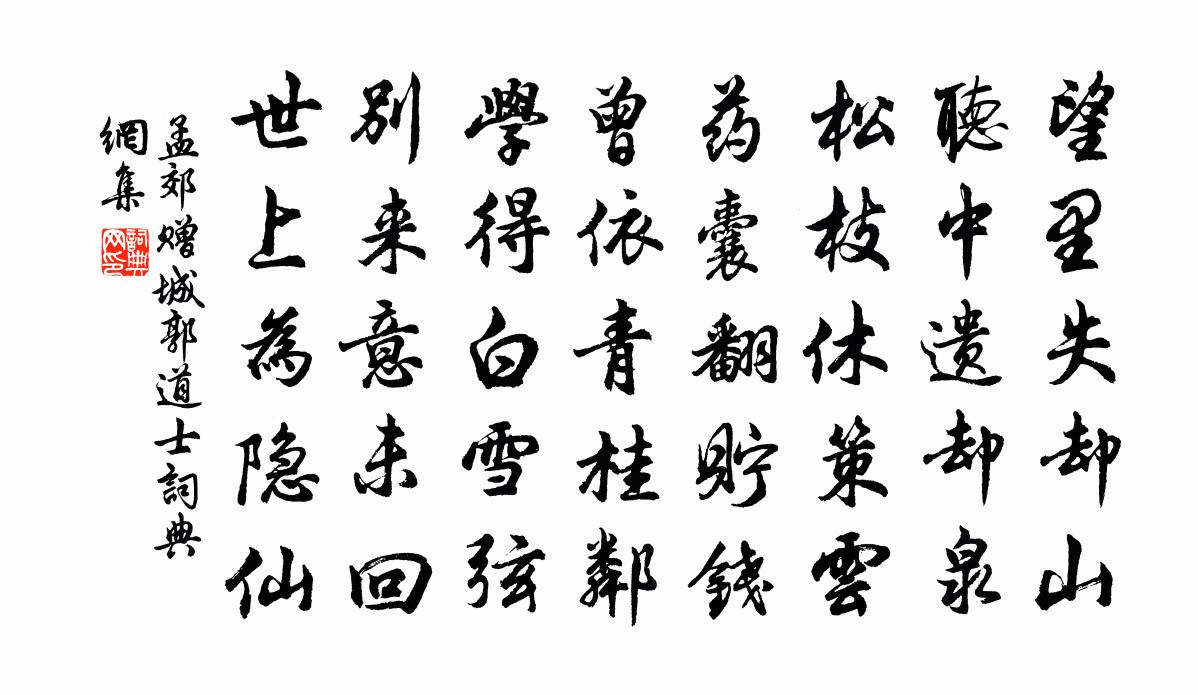 望里失却山
聽中遗却泉
松枝休策雲
药囊翻貯錢
曾依青桂鄰
學得白雪弦
别来意未回
世上為隐仙
孟郊赠城郭道士詞典
網集
詞典
网印